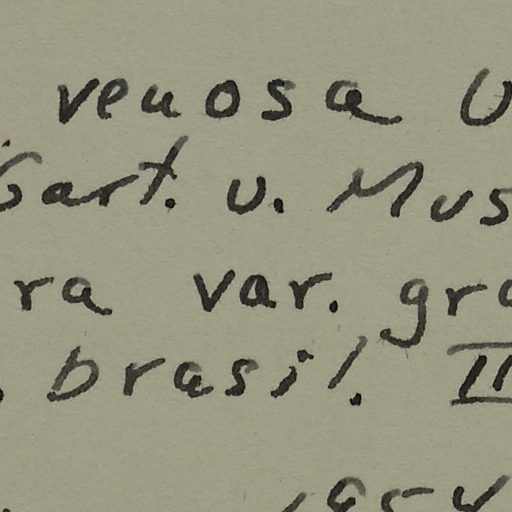 venosa U
Gart. u. Mus
ra var. gra
brasil. II